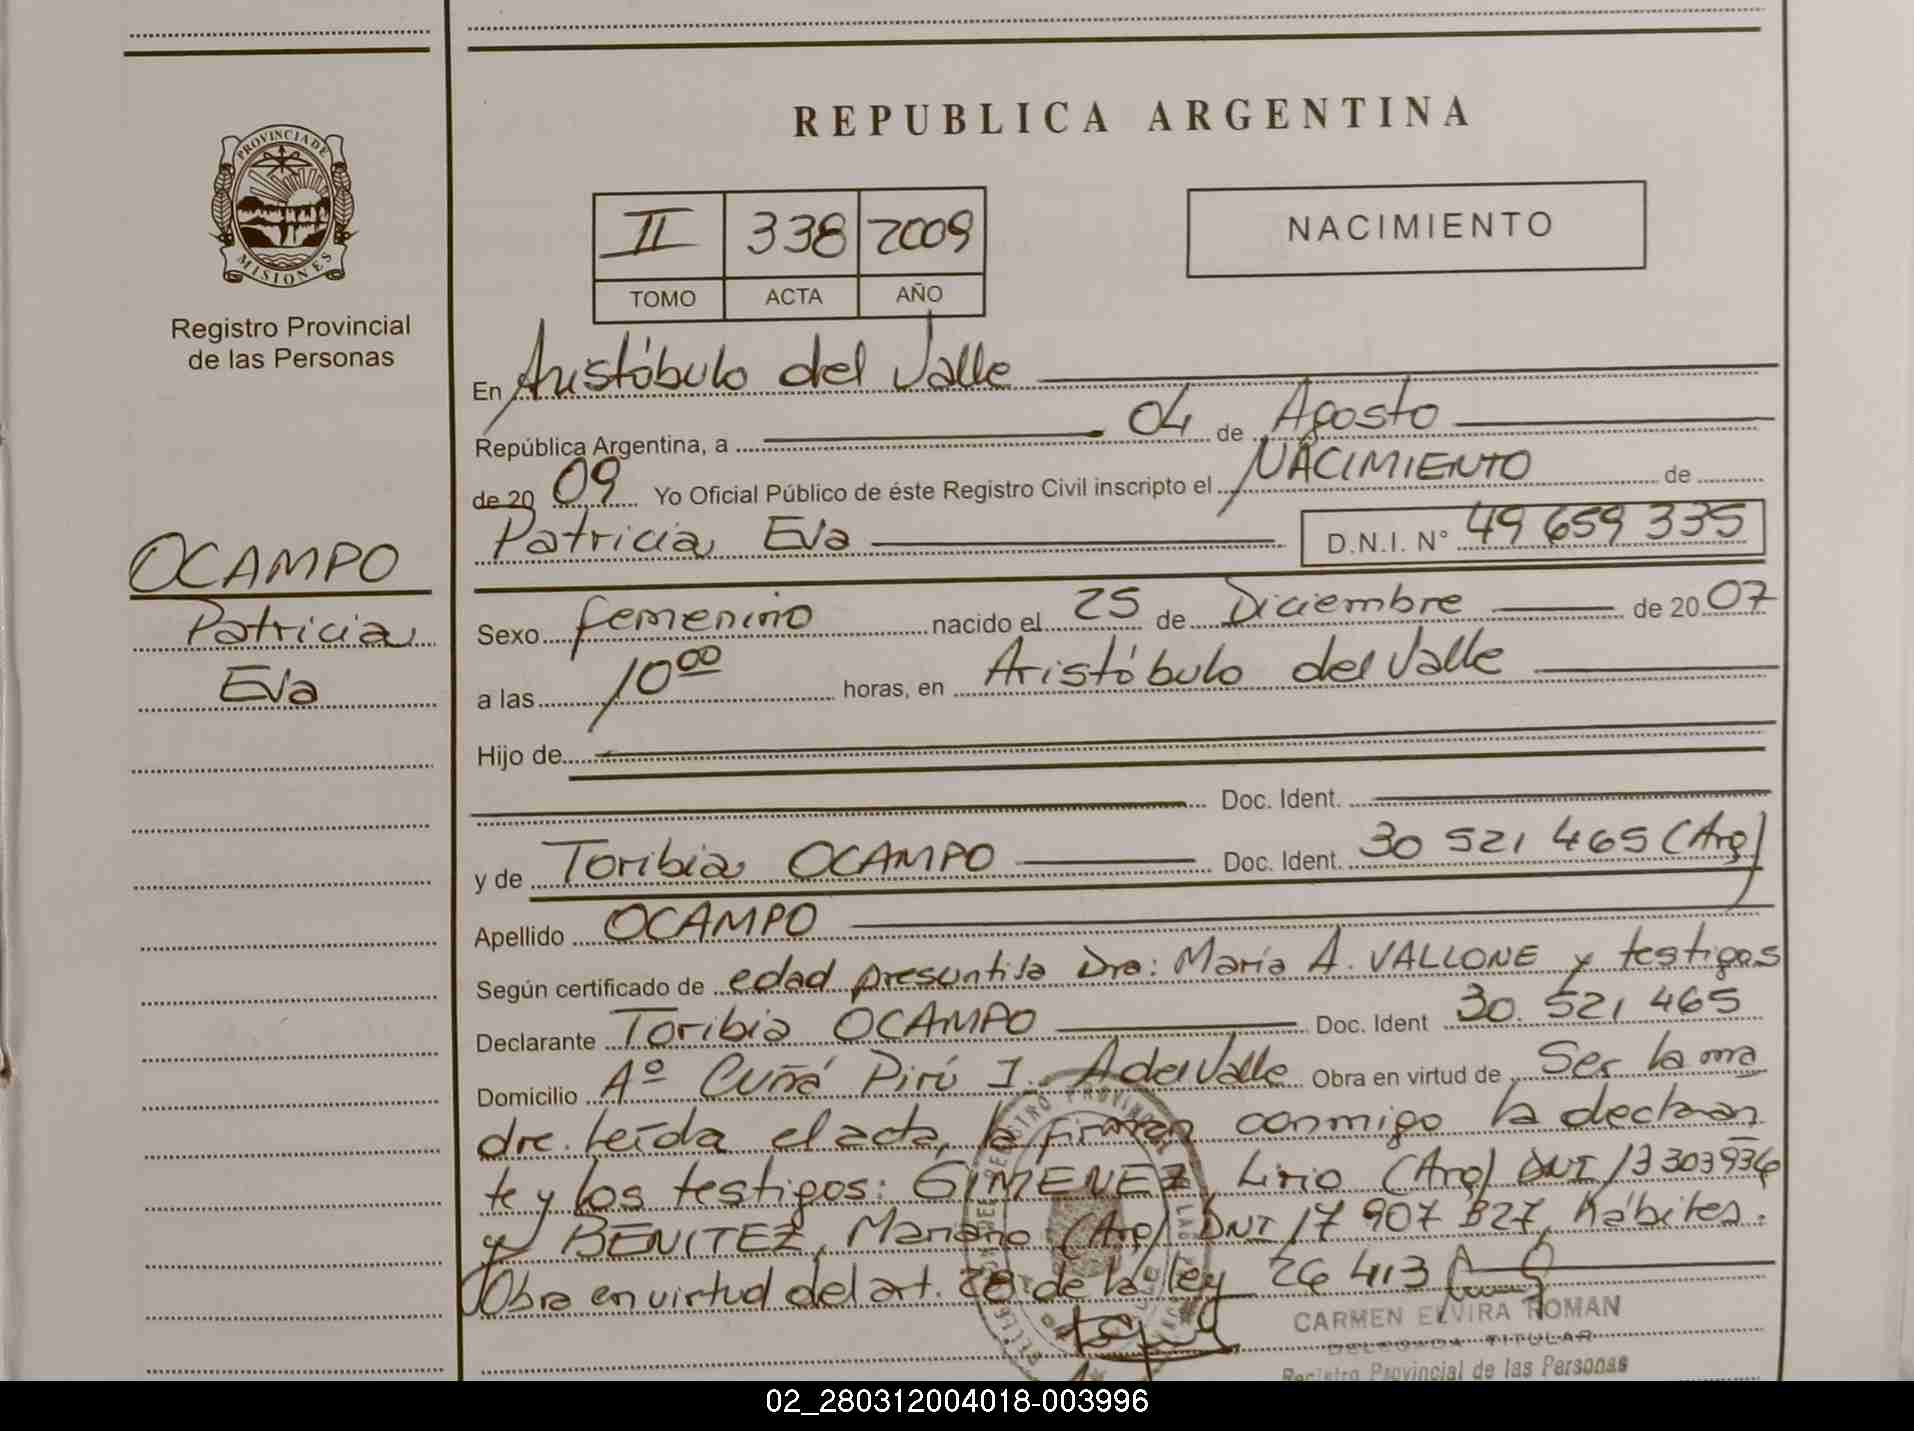 REPUBLICA ARGENTINA
PROVINCIA DE
MISIONES
Registro Provincial
de las Personas
II 338 2009
TOMO ACTA AÑO
NACIMIENTO
En Aristóbulo del Valle
República Argentina, a 04 de Agosto
de 20 09 Yo Oficial Público de éste Registro Civil inscripto el NACIMIENTO de
Patricia Eva D.N.I. N° 49 659 335
OCAMPO
Patricia
Eva
Sexo femenino nacido el 25 de Diciembre de 20 07
a las 10 00 horas, en Aristóbulo del Valle
Hijo de
Doc. Ident.
y de Toribia OCAMPO Doc. Ident. 30 521 465 (Arg)
Apellido OCAMPO
Según certificado de edad presuntiva Dra: María A. VALLONE y testigos
Declarante Toribia OCAMPO Doc. Ident 30. 521 465
Domicilio Aº Cuñá Pirú I. A del Valle Obra en virtud de Ser la ma
dre. leída el acta, la firman conmigo la declaran
te y los testigos: GIMENEZ, Lirio (Arg) DNI 13 303 936
y BENITEZ, Mariano (Arg) DNI 17 907 827, hábiles.
Obra en virtud del art. 28 de la ley 26 413
CARMEN ELVIRA ROMAN
DELEGADA TITULAR
Registro Provincial de las Personas
02_280312004018-003996